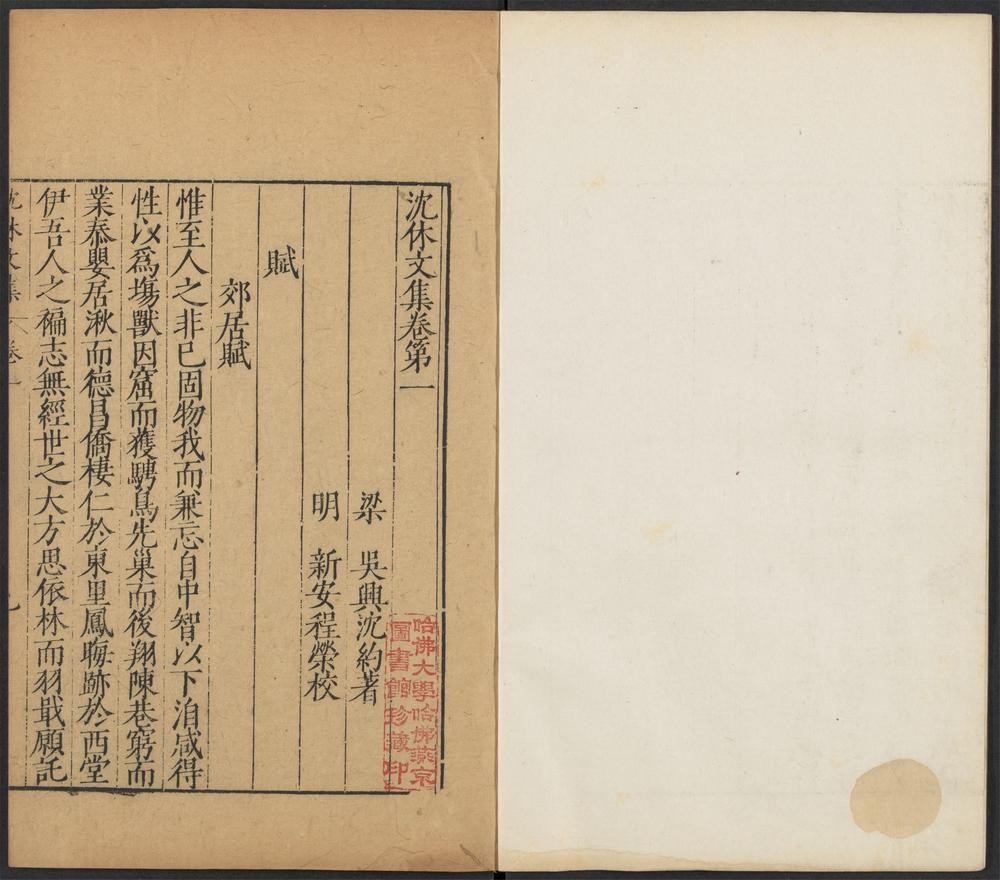 沈休文集卷第一
梁 吳興沈約著
明 新安程榮校
賦
郊居賦
惟至人之非已固物我而兼忘自中智以下洎咸得
性以爲塲獸因窟而獲騁鳥先巢而後翔陳巷窮而
業泰嬰居湫而德昌僑棲仁於東里鳳晦跡於西堂
伊吾人之褊志無經世之大方思依林而羽戢願託
沈休文集 卷一
哈佛大學哈佛燕京
圖書館珍藏印